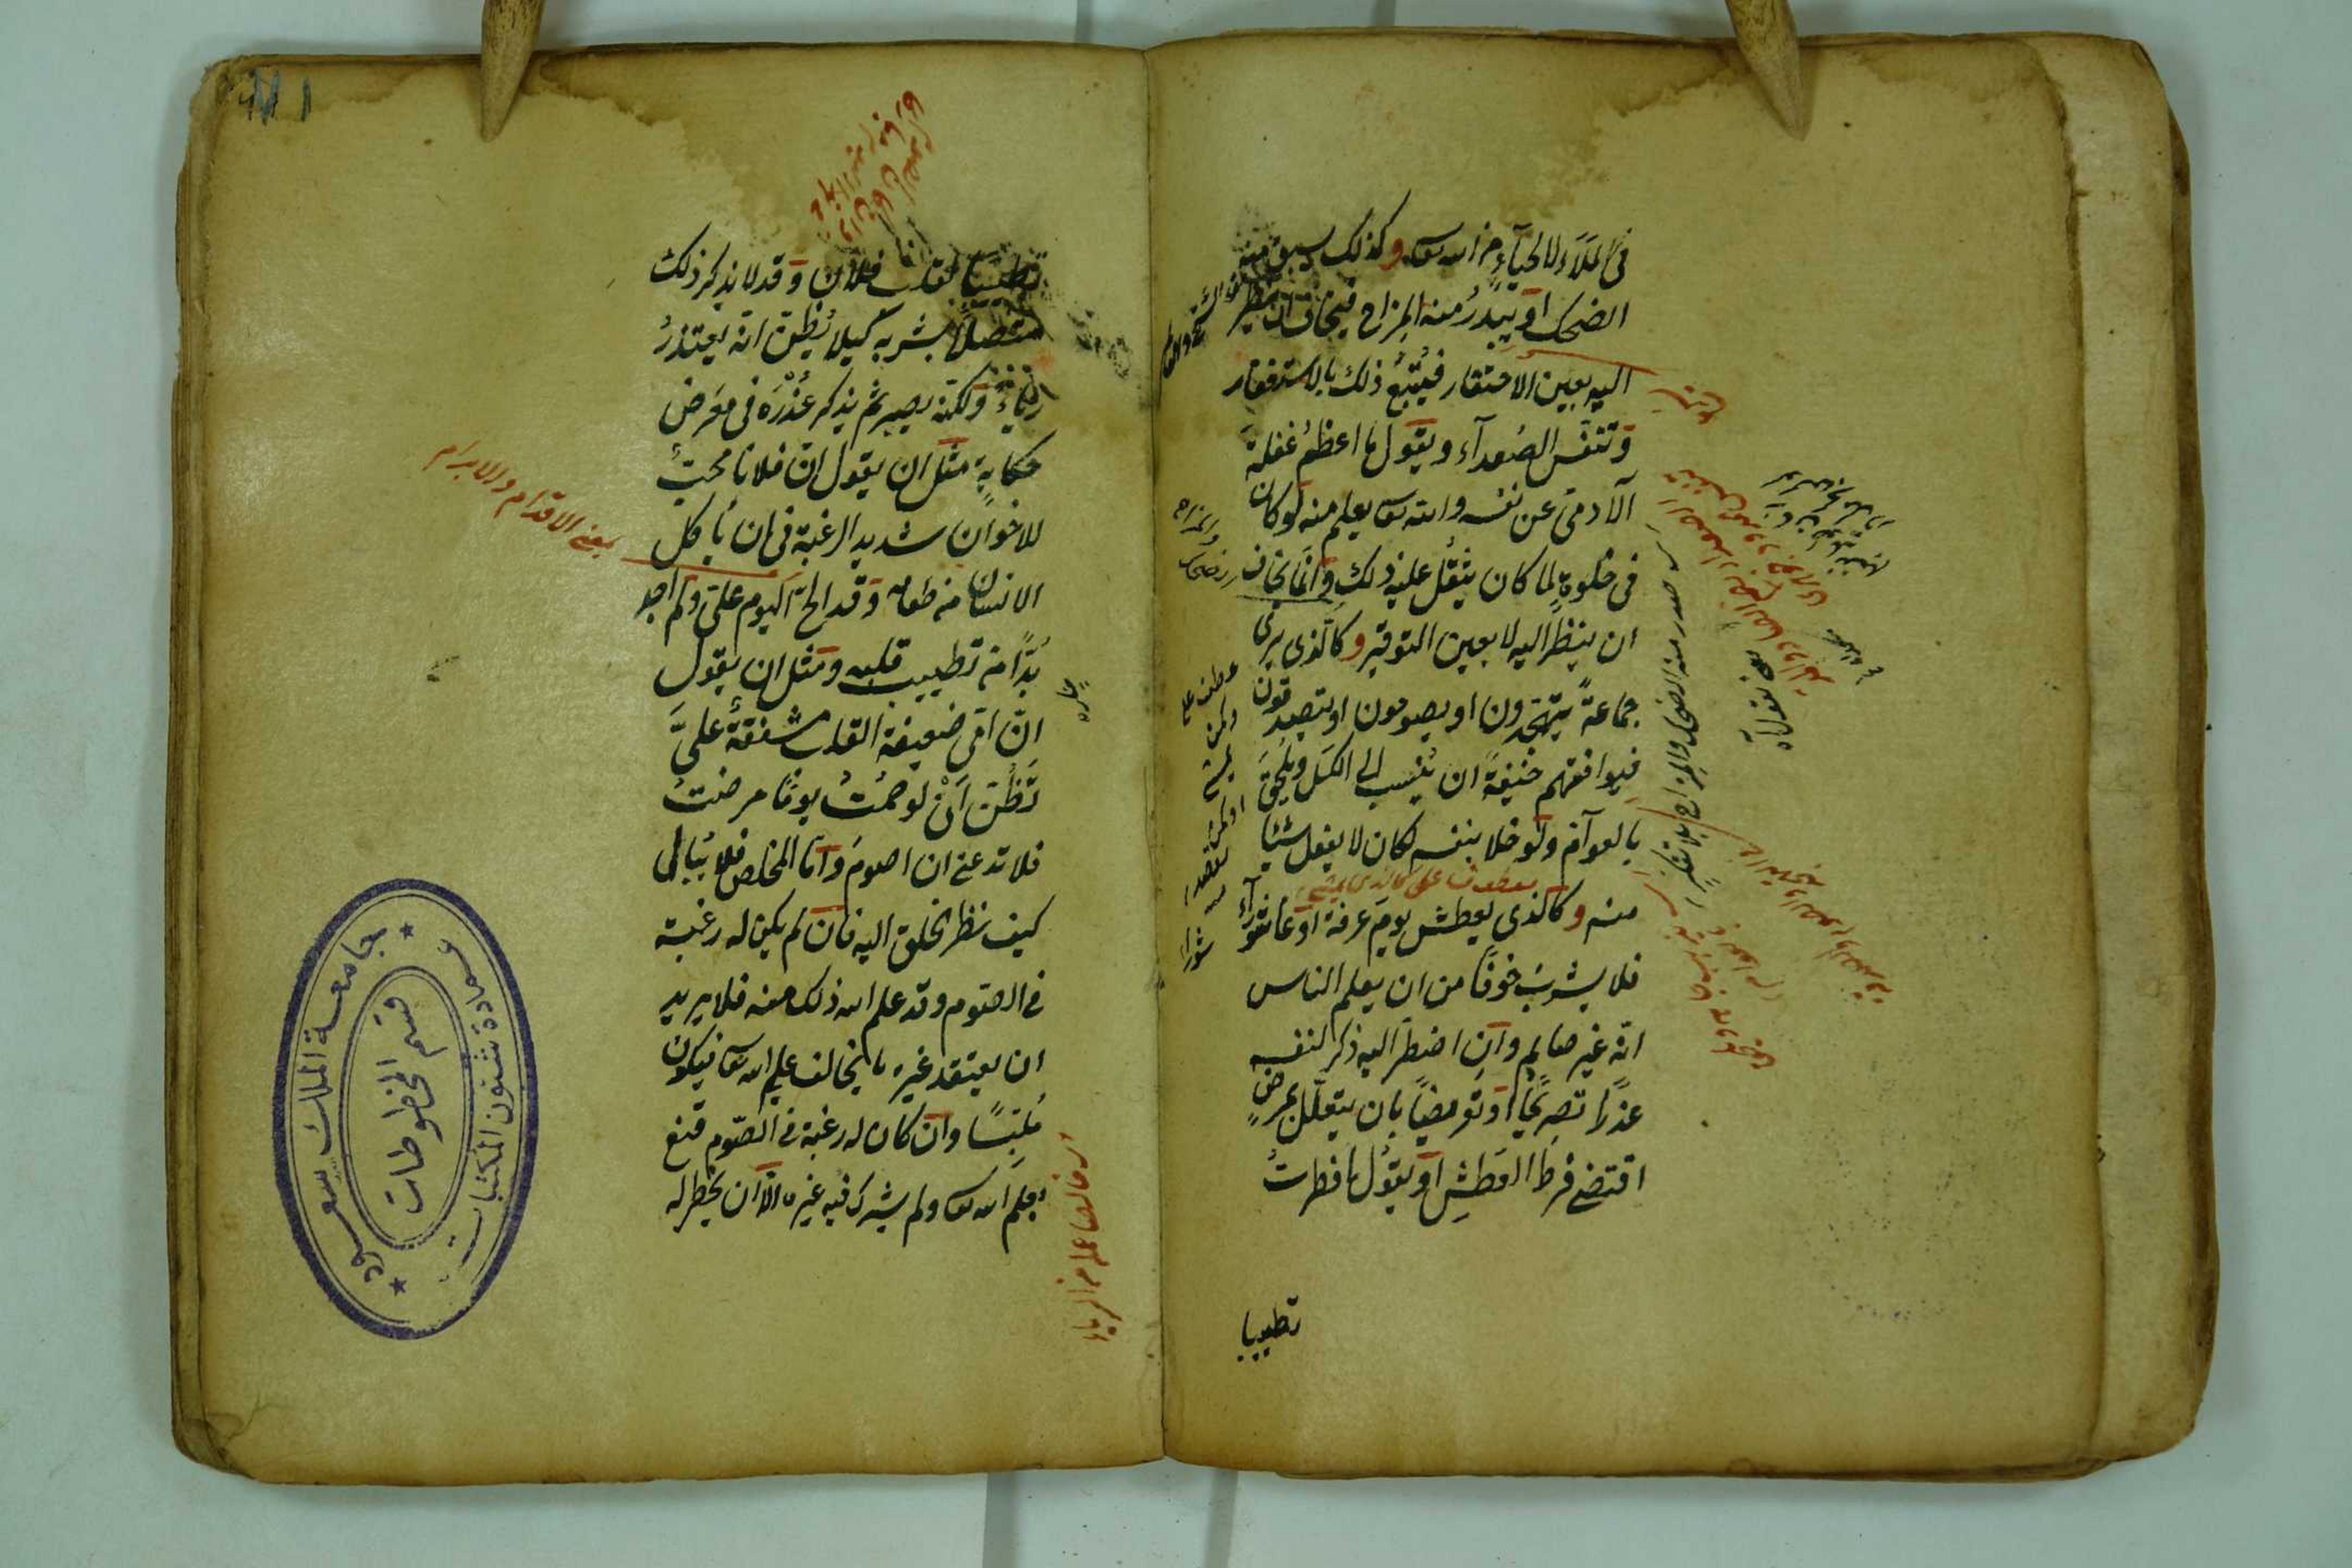 فى الملاء لا لحياءٍ من الله تعا وكذلك يسبق منه
الضحك او يبدرُ منه المزاح فيخاف ان ينظر
اليه بعين الاحتقار فيُتبعُ ذلك بالاستغفار
وتنفس الصُعدآء ويقول ما اعظمُ غفلة
الآدمى عن نفسه والله تعا يعلم منه لو كان
فى خلوةٍ لما كان يثقُل عليه ذلك وانما يخاف
ان ينظر اليه لا بعين التوقير وكالذى يرى
جماعةً يتهجّدون او يصومون او يتصدقون
فيوافقهم خيفةً ان يُنسب الى الكسل ويُلحَقَ
بالعوآم ولو خلا بنفسه لكان لا يفعل شيئا
معطوف على كالذى
منه وكالذى يعطش يوم عرفة او عاشورآء
فلا يشربُ خوفًا من ان يعلم الناس
انه غير صايم وان اضطر اليه ذكر لنفسه
عذرًا تصريحًا او تعريضًا بان يتعلّل بمرضٍ
اقتضى فرط العطشِ او يقولُ افطرتُ
تطييبا
عطف على
والمزاح
صدر منه الضحك والمزاح
تطييبًا لقلب فلان وقد لا يذكر ذلك
متصلاً بشربه كيلا يُظن انه يعتذرُ
رياءً ولكنه يصبر ثم يذكر عُذْرَه فى معرض
حكايةٍ مثل ان يقول ان فلانا محبٌ
للاخوان شديد الرغبة فى ان يأكل
الانسان من طعامه وقد الحّ اليوم علىّ ولم اجد
بُدًّا من تطييب قلبه ومثل ان يقول
انّ امّى ضعيفة القلب مشفقةٌ علىَّ
تَظُنّ اَنْ لو صُمْتُ يومًا مرضتُ
فلا تدعنى ان اصوم وامّا المخلص فلا يُبالى
كيف نظر الخلق اليه فان لم يكن له رغبة
فى الصّوم وقد علم الله ذلك منه فلا يريد
ان يعتقد غيره ما يخالف علم الله تعا فيكون
مُلبّسًا وان كان له رغبة فى الصّوم قنع
بعلم الله تعا ولم يشرك فيه غيره الا ان يخطر له
بمعنى الاقدام والابرام
جامعة الملك سعود
عمادة شئون المكتبات
قسم المخطوطات